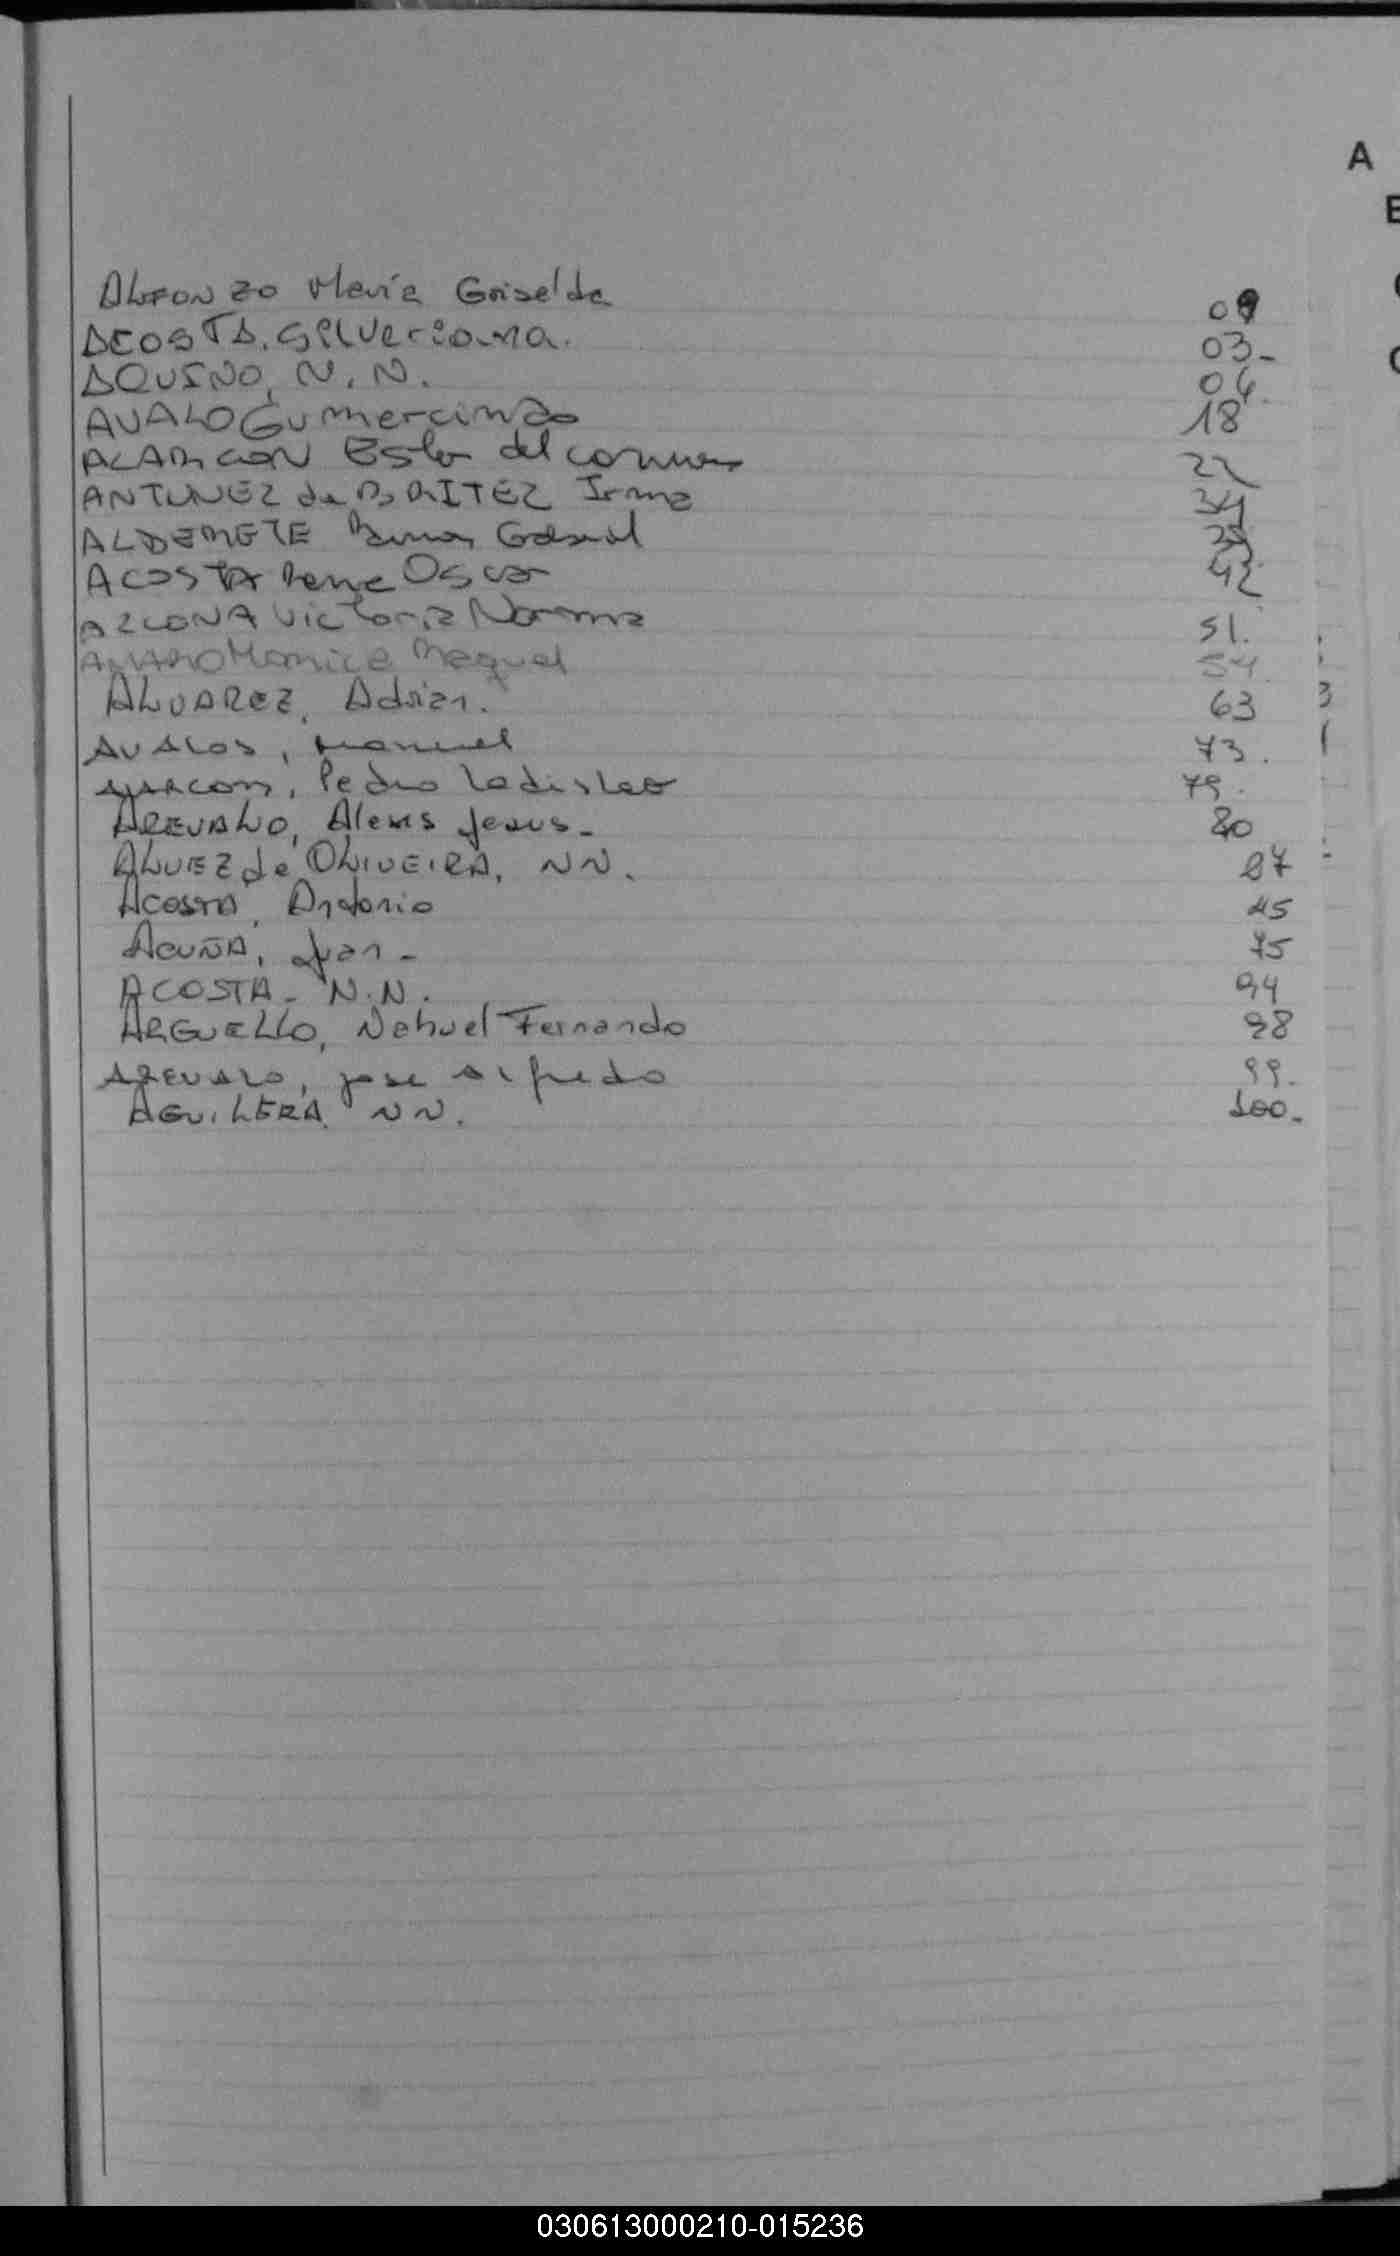 A
ALFONZO María Griselda 09
ACOSTA. Silveriana. 03-
AQUINO, N.N. 04
AVALO Gumercindo 18
ALARCON Ester del carmen 22
ANTUNEZ de BRITEZ Irma 34
ALDERETE Gabriel
ACOSTA Rene Oscar 42
AZCONA Victoria Norma 51.
AMARO Monica Raquel 54
ALVAREZ, Adrian. 63
AVALOS, Manuel 73.
ALARCON, Pedro Ladislao 79.
AREVALO, Alexis Jesus- 80
ALVEZ de OLIVEIRA, NN. 87
ACOSTA, Antonio 45
ACUÑA, Juan- 75
ACOSTA- N.N. 94
ARGUELLO, Nahuel Fernando 98
AREVALO, jose Alfredo 99.
AGUILERA NN. 100-
030613000210-015236